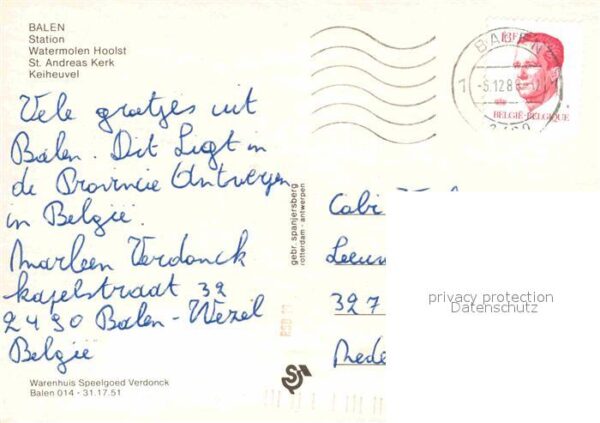 BALEN
Station
Watermolen Hoolst
St. Andreas Kerk
Keiheuvel
Vele groetjes uit
Balen. Dit Ligt in
de Provincie Antwerpen
in België.
Marleen Verdonck
kapelstraat 32
2490 Balen-Wezel
België
Warenhuis Speelgoed Verdonck
Balen 014 - 31.17.51
gebr. spanjersberg
rotterdam - antwerpen
BALEN
1
-5.12.8
BELGIË-BELGIQUE
Cobi
Leeu
327
Nede
privacy protection
Datenschutz